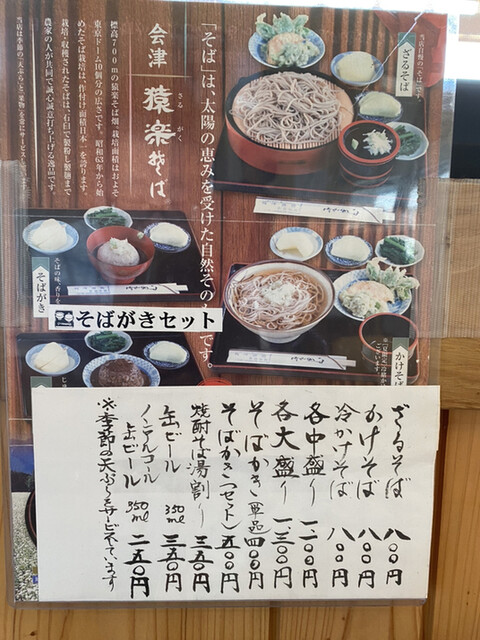 「そば」は、太陽の恵みを受けた自然その
です。
会津 猿楽そば
さる がく
標高700mの猿楽そば畑。栽培面積はおよそ
東京ドーム10個分の広さです。昭和63年から始
めたそば栽培は、作付け面積日本一を誇ります。
栽培・収穫されたそばは、石臼で製粉し製麺まで
農家の人が共同で誠心誠意打ち上げる逸品です。
ざるそば
そばがき
そばがきセット
かけそば
ざるそば 八〇〇円
かけそば 八〇〇円
冷かけそば 八〇〇円
各中盛り 一一〇〇円
各大盛り 一三〇〇円
そばがき 単品 四〇〇円
そばがき(セット) 五〇〇円
焼酎そば湯割り 三五〇円
缶ビール 350ml 三五〇円
ノンアルコール缶ビール 350ml 二五〇円
※季節の天ぷらをサービスしています